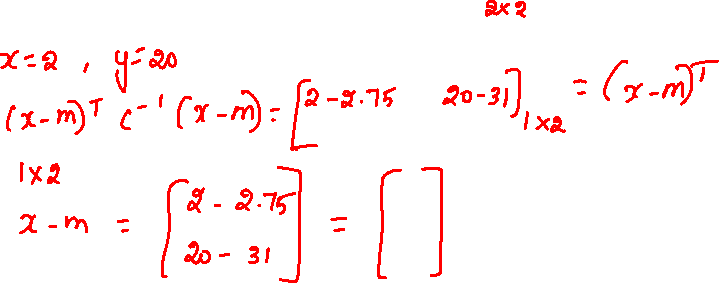 2x2
x=2 , y=20
(x-m)ᵀ C⁻¹ (x-m) = [2-2.75 20-31]₁ₓ₂ = (x-m)ᵀ
1x2
x-m = [2-2.75
20-31] = [ ]